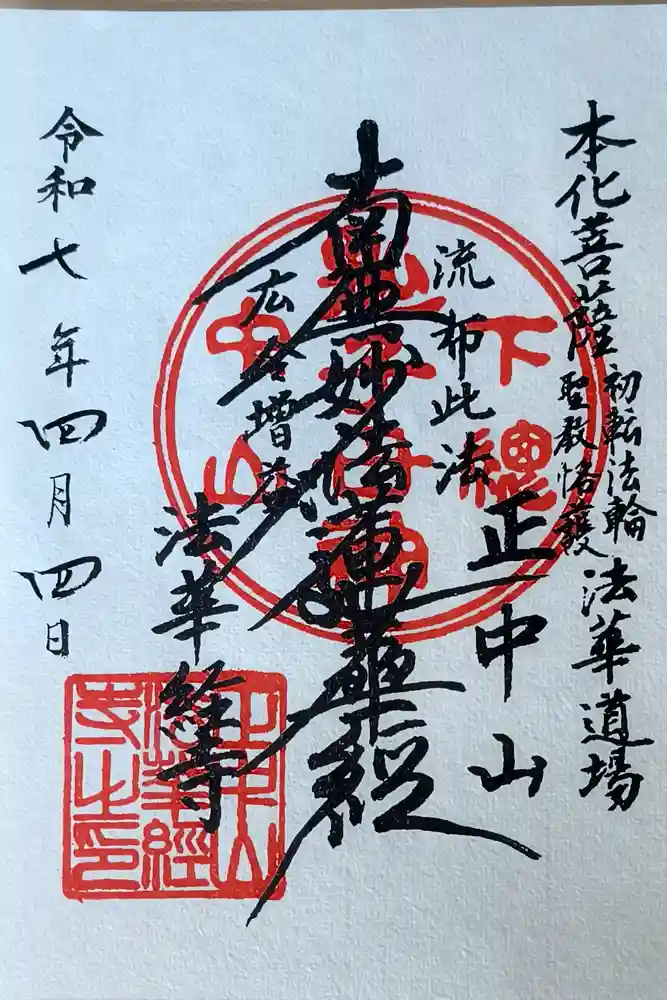 本化菩薩 初転法輪 法華道場
聖教恪護
正中山
流布此法
南無妙法蓮華経
広令増益
法華経寺
令和七年四月四日
下總
中山
正中山
法華經
寺之印